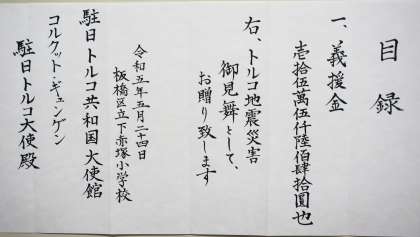 目録
一、義援金
壱拾伍萬伍仟陸佰肆拾圓也
右、トルコ地震災害
御見舞として、
お贈り致します
令和五年五月二十四日
板橋区立下赤塚小学校
駐日トルコ共和国大使館
コルクット・ギュンゲン
駐日トルコ大使殿